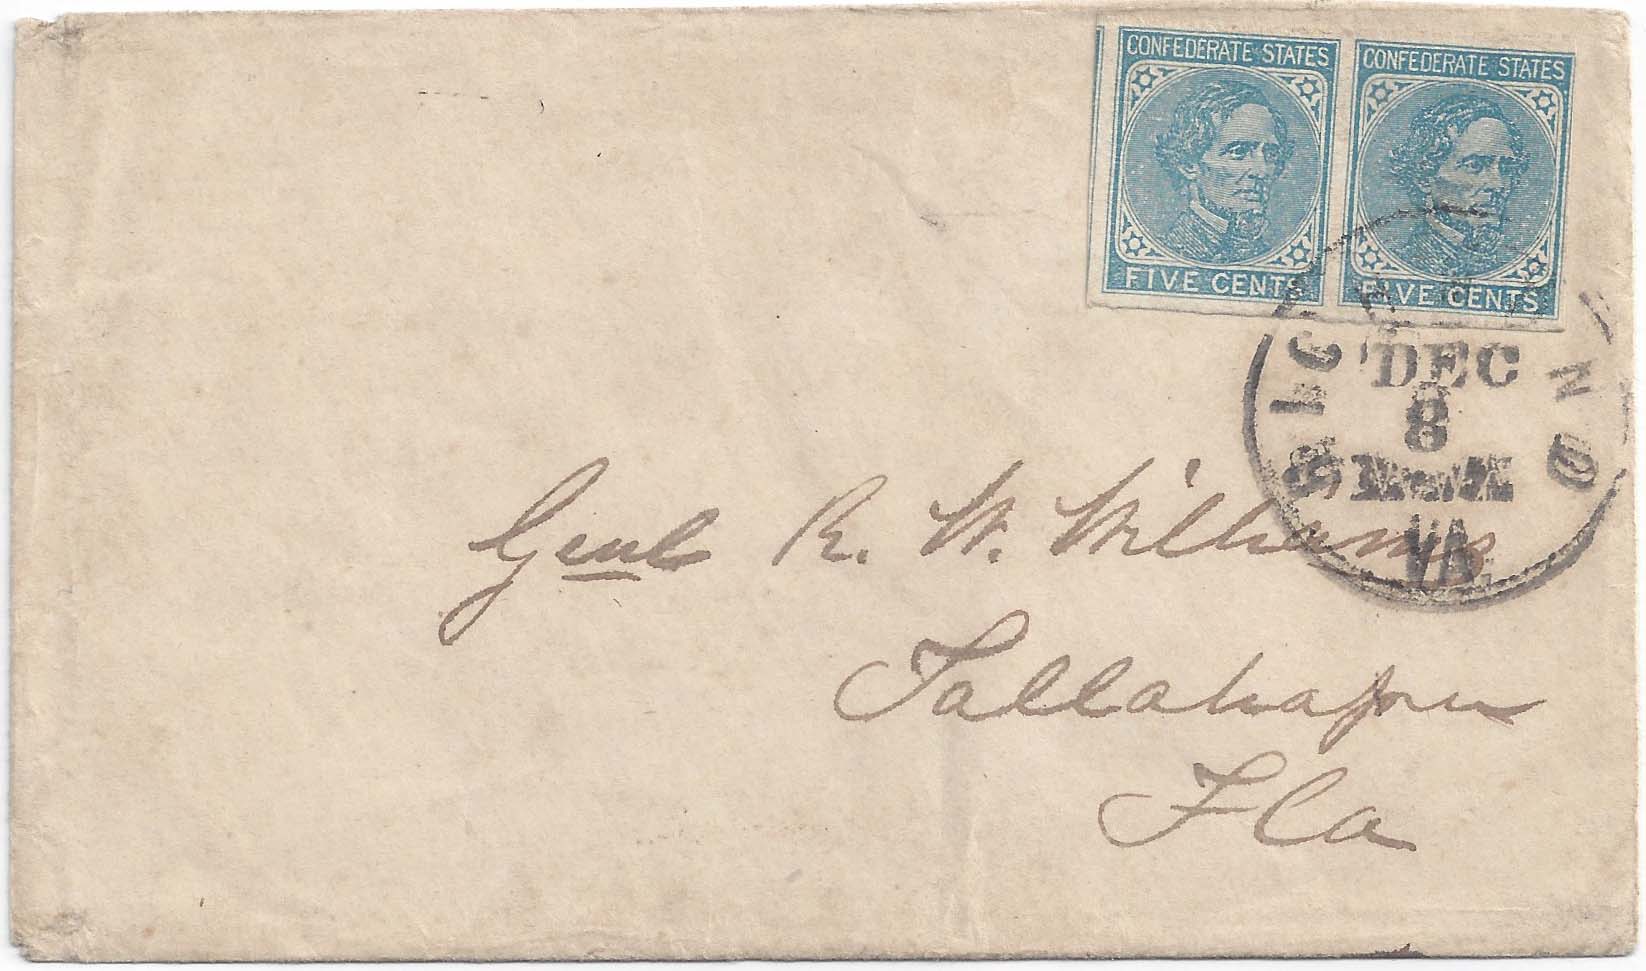 CONFEDERATE STATES
FIVE CENTS
CONFEDERATE STATES
FIVE CENTS
RICHMOND
DEC
8
VA.
Genl R. W. Williams
Tallahassee
Fla